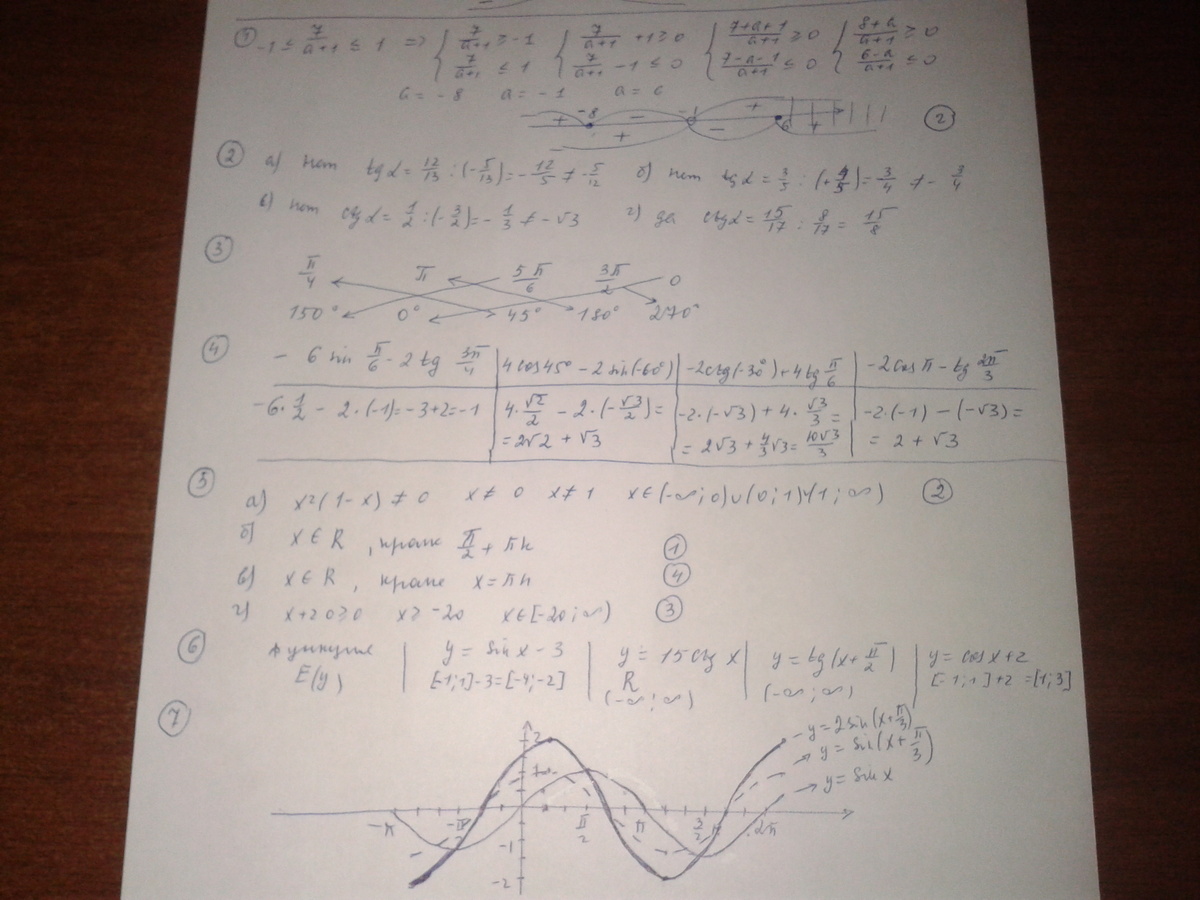 ① -1 ≤ 7/(a+1) ≤ 1 => { 7/(a+1) ≥ -1 { 7/(a+1) + 1 ≥ 0 { (7+a+1)/(a+1) ≥ 0 { (8+a)/(a+1) ≥ 0
7/(a+1) ≤ 1 7/(a+1) - 1 ≤ 0 (7-a-1)/(a+1) ≤ 0 (6-a)/(a+1) ≤ 0
a = -8 a = -1 a = 6
+ -8 - -1 + 6 ②
- + - +
② а) нет tg α = 12/13 : (-5/13) = -12/5 ≠ -5/12 б) нет tg α = 3/5 : (+4/5) = 3/4 ≠ -3/4
в) нет ctg α = 1/2 : (-3/2) = -1/3 ≠ -√3 г) да ctg α = 15/17 : 8/17 = 15/8
③
π/4 π 5π/6 3π/2 0
150° 0° 45° 180° 270°
④ - 6 sin π/6 - 2 tg 3π/4 | 4 cos 45° - 2 sin(-60°) | -2 ctg(-30°) + 4 tg π/6 | -2 cos π - tg 2π/3
-6·1/2 - 2·(-1) = -3+2 = -1 | 4·√2/2 - 2·(-√3/2) = | -2·(-√3) + 4·√3/3 = | -2·(-1) - (-√3) =
= 2√2 + √3 | = 2√3 + 4/3√3 = 10√3/3 | = 2 + √3
⑤ а) x²(1-x) ≠ 0 x ≠ 0 x ≠ 1 x∈(-∞;0)∪(0;1)∪(1;∞) ②
б) x∈R, кроме π/2 + πn ①
в) x∈R, кроме x = πn ④
г) x+20≥0 x≥-20 x∈[-20;∞) ③
⑥ функция | y = sin x - 3 | y = 15 ctg x | y = tg(x + π/2) | y = cos x + 2
E(y) | [-1;1]-3=[-4;-2] | R (-∞;∞) | (-∞;∞) | [-1;1]+2=[1;3]
⑦
2 y = 2 sin(x + π/3)
1 y = sin(x + π/3)
y = sin x
-π -π/2 π/2 π 3/2 π 2π
-1
-2